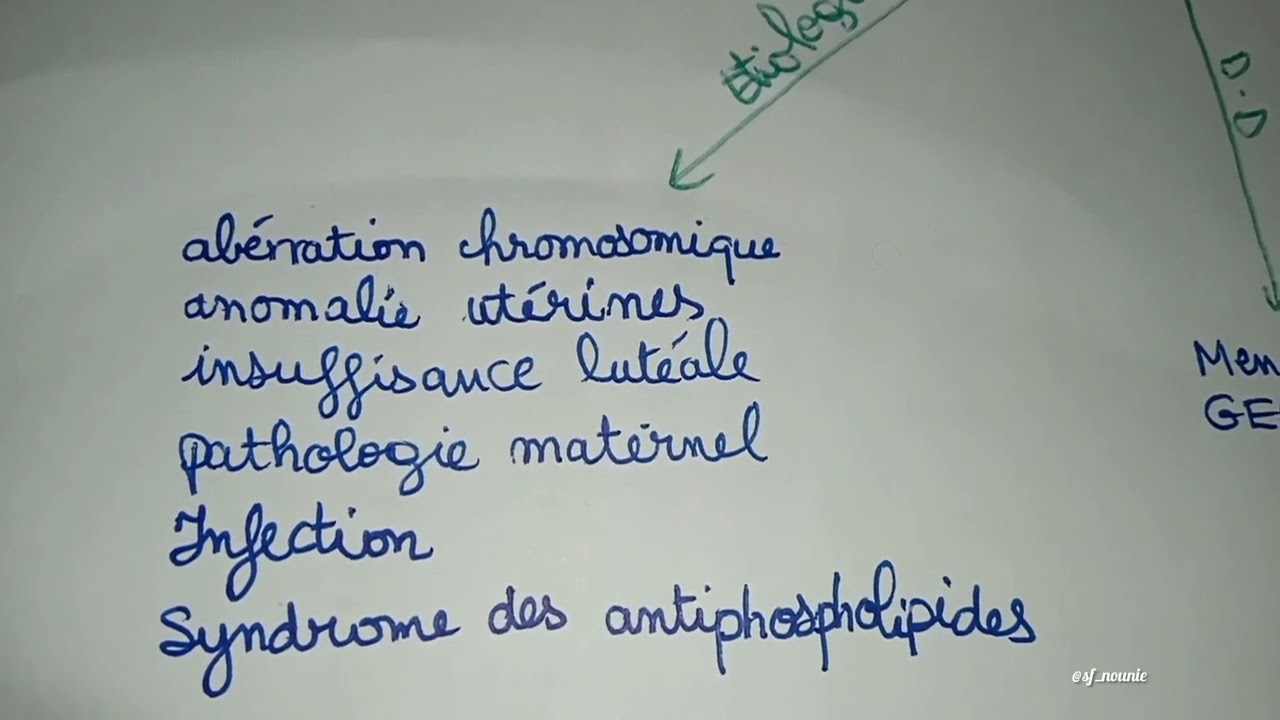 D.D
abérration chromosomique
anomalie utérines
insuffisance lutéale
pathologie matérnel
Infection
Syndrome des antiphospholipides
@sf_nounie